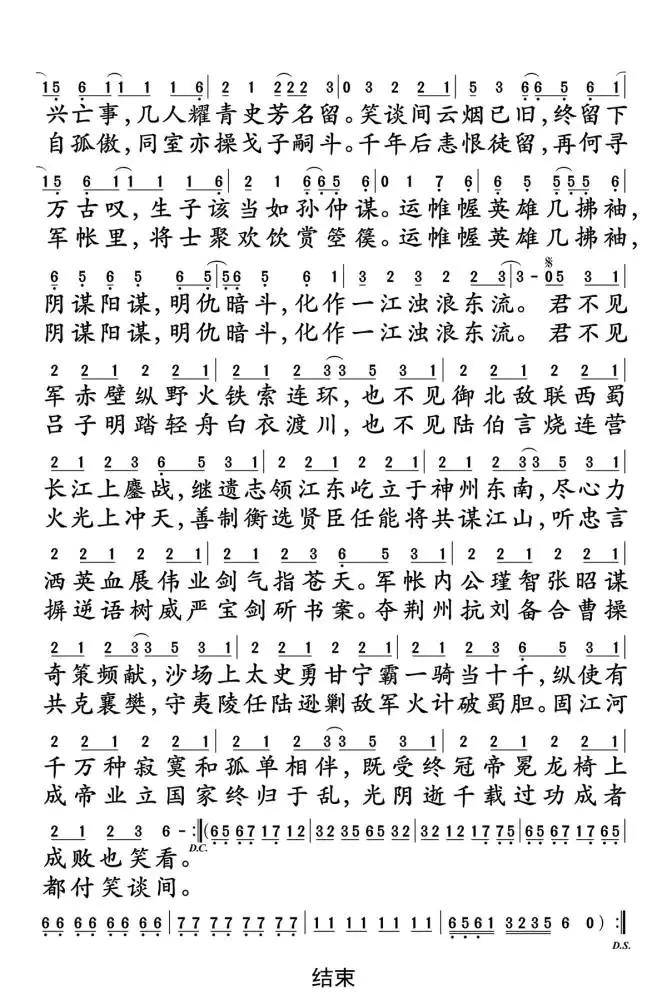 1 5 6 1 | 1 1 1 6 | 2 1 2 2 2 3 | 0 3 2 2 1 | 5 3 6 6 5 6 1
兴亡事，几人耀青史芳名留。笑谈间云烟已旧，终留下
自孤傲，同室亦操戈子嗣斗。千年后恚恨徒留，再何寻
1 5 6 1 | 1 1 1 6 | 2 1 6 6 5 6 | 0 1 7 6 | 5 3 5 5 5 6
万古叹，生子该当如孙仲谋。运帷幄英雄几拂袖，
军帐里，将士聚欢饮赏箜篌。运帷幄英雄几拂袖，
6 5 6 5 6 5 | 5 6 5 6 1 | 3 2 3 2 2 3 | 3 - 0 5 3 1
阴谋阳谋，明仇暗斗，化作一江浊浪东流。君不见
阴谋阳谋，明仇暗斗，化作一江浊浪东流。君不见
2 2 1 2 2 1 | 2 2 1 2 3 | 3 5 3 1 | 2 2 1 2 2 1
军赤壁纵野火铁索连环，也不见御北敌联西蜀
吕子明踏轻舟白衣渡川，也不见陆伯言烧连营
2 1 2 3 6 5 3 1 | 2 2 1 2 2 1 | 2 2 1 2 3 | 3 5 3 1
长江上鏖战，继遗志领江东屹立于神州东南，尽心力
火光上冲天，善制衡选贤臣任能将共谋江山，听忠言
2 2 1 2 2 1 | 2 1 2 3 6 5 3 1 | 2 2 1 2 2 1
洒英血展伟业剑气指苍天。军帐内公瑾智张昭谋
摒逆语树威严宝剑斫书案。夺荆州抗刘备合曹操
2 2 1 2 3 | 3 5 3 1 | 2 2 1 2 2 1 | 2 1 2 3 6 5 3 1
奇策频献，沙场上太史勇甘宁霸一骑当十千，纵使有
共克襄樊，守夷陵任陆逊剿敌军火计破蜀胆。固江河
2 2 1 2 2 1 | 2 2 1 2 3 | 3 5 3 1 | 2 2 1 2 2 1
千万种寂寞和孤单相伴，既受终冠帝冕龙椅上
成帝业立国家终归于乱，光阴逝千载过功成者
2 1 2 3 6 - :‖ ( 6567 1712 | 3235 6532 | 3212 1775 | 6567 1765
D.C.
成败也笑看。
都付笑谈间。
66 66 66 66 | 77 77 77 77 | 11 11 11 11 | 6561 3235 6 0 ) :‖
D.S.
结束